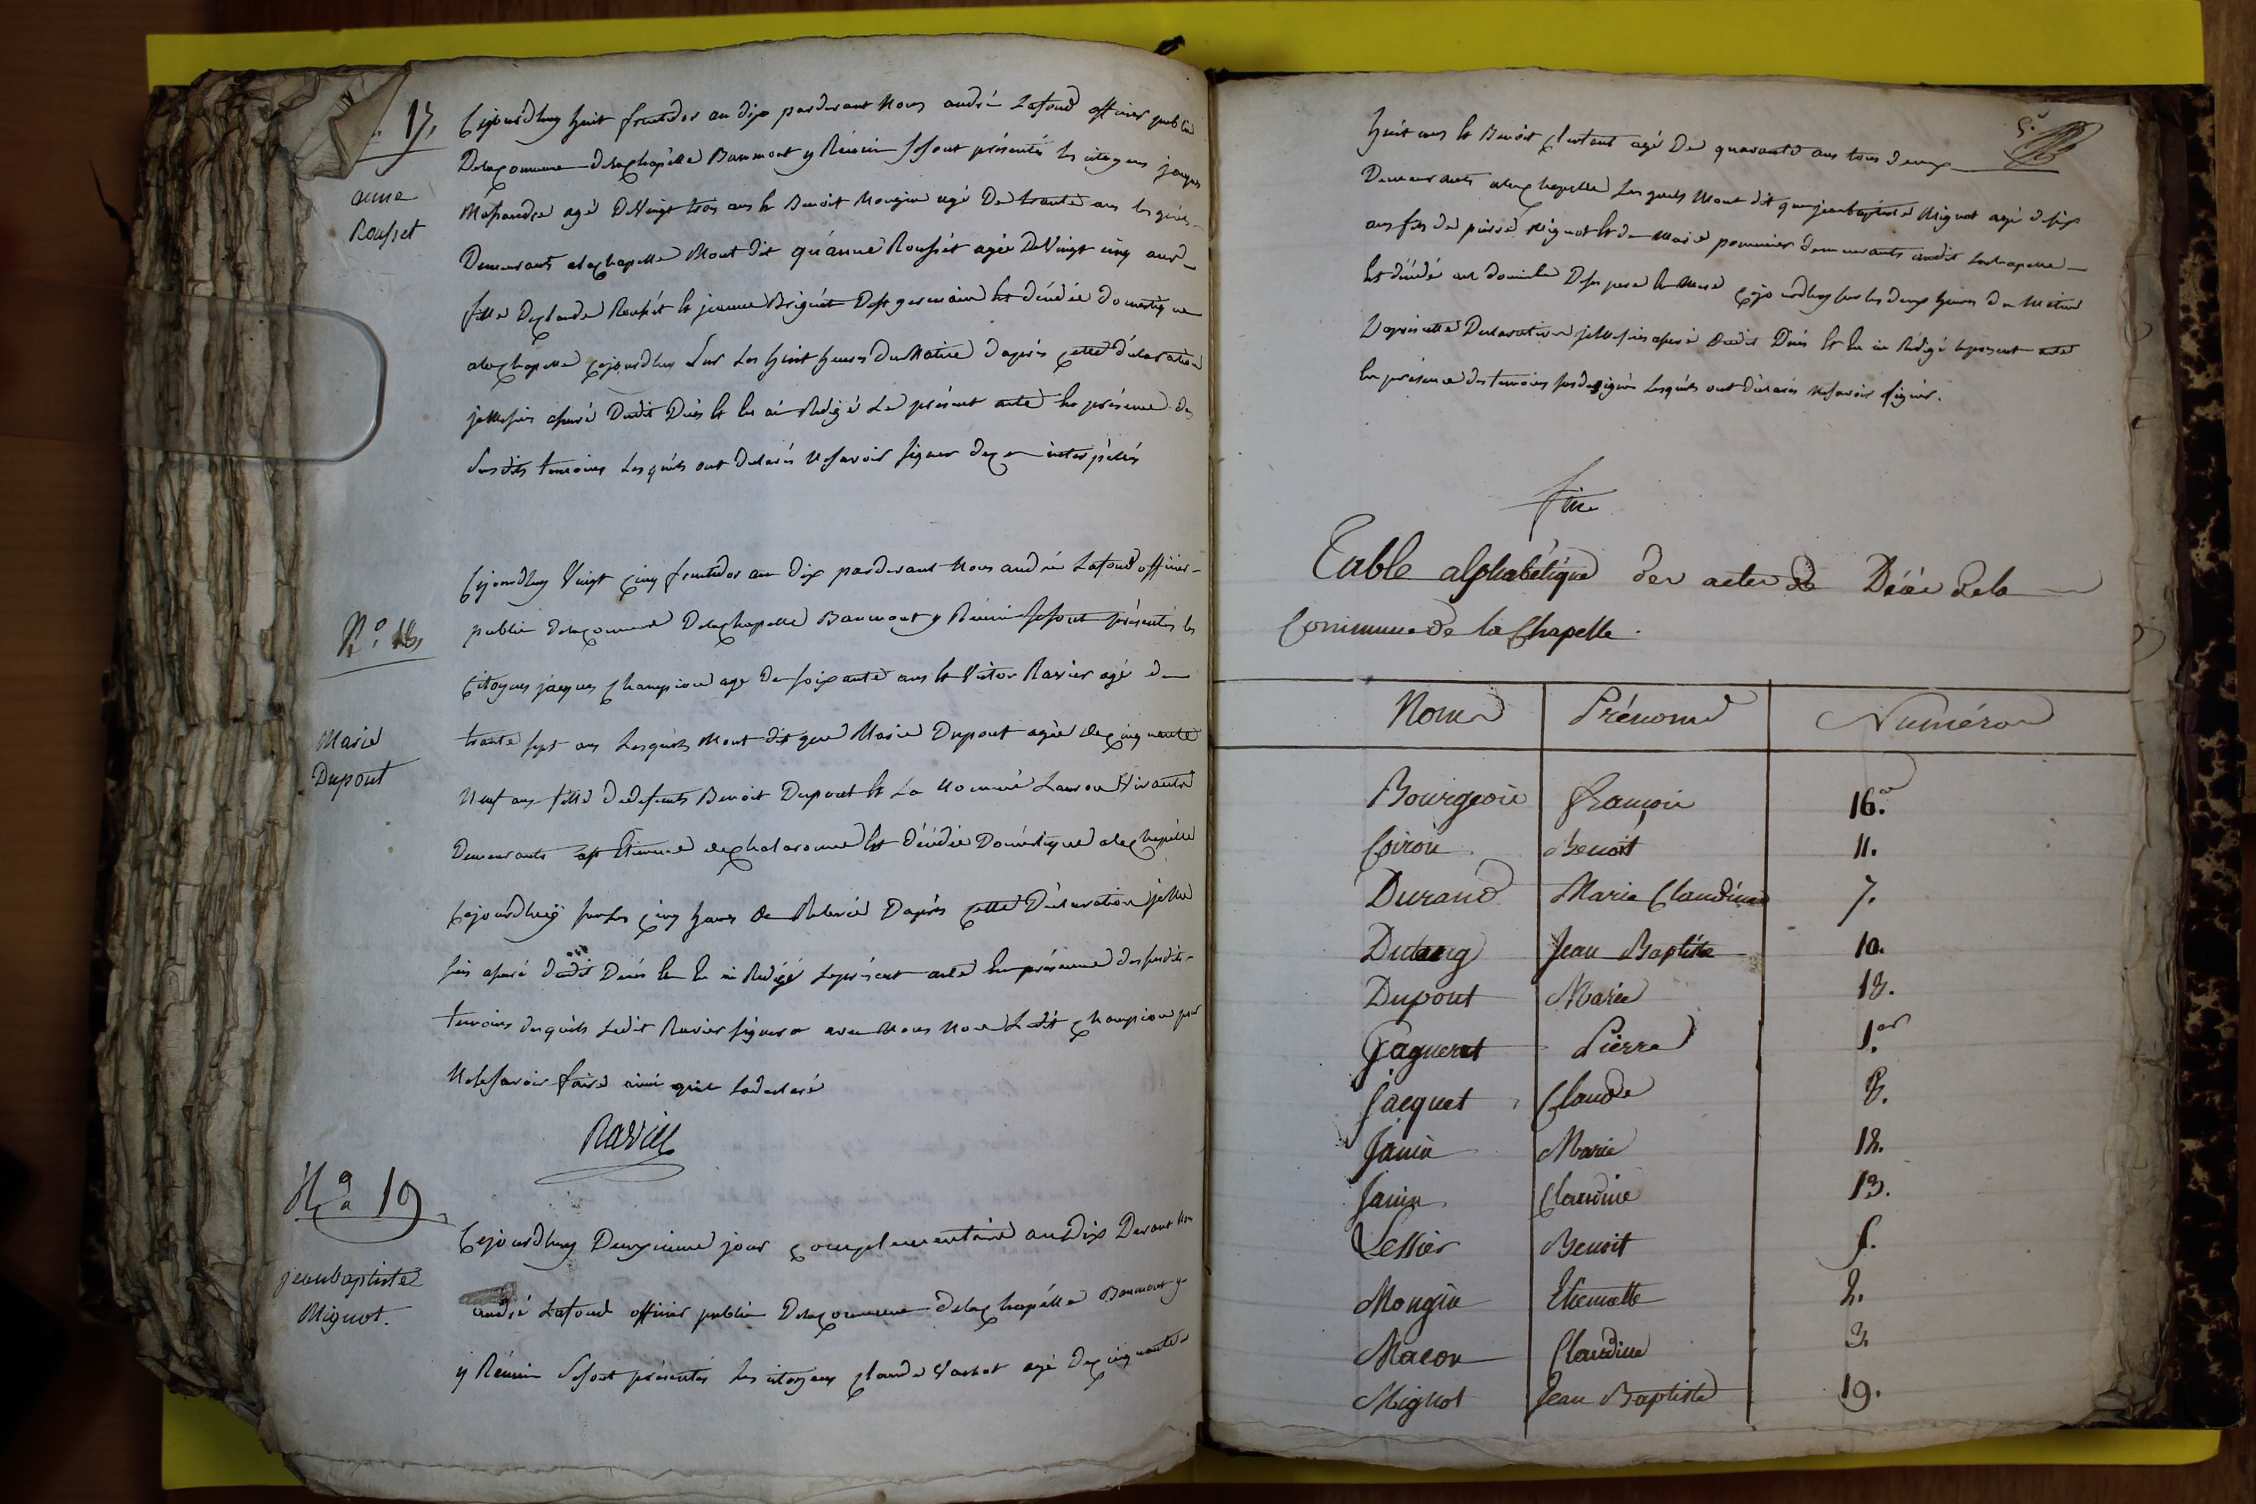 17,
anne
Rousset
Cejourdhuy huit fructidor an dix pardevant Nous andré Lafond officier public
Delacommune delachapelle Baumont y Réuni sesont présentés les citoyens jaques
agé DeVingt trois ans et Benoit Mongin agé De trante ans lesquels
Demeurants alachapelle Mont dit qu'anne Rousset agée DeVingt cinq ans
fille Declaude Rousset et jeanne St germain est décédée domestique
alachapelle cejourdhuy Sur Les huit heures DuMatin daprès cette déclaration
jeMesuis assuré Dudit Décès et en ai Redigé Le présent acte en présence des
Susdits temoins Lesquels ont declarés Nesavoir signer dece interpéllés
N.º 18,
Marie
Dupont
Cejourdhuy Vingt cinq fructidor an dix pardevant Nous andré Lafond officier
public delacommune Delachapelle Baumont y Réuni sesont présentés les
citoyens jacques Champion agé de soixante ans et Victor Ravier agé de
trante sept ans Lesquels Mont dit que Marie Dupont agée decinquante
Neuf ans fille dedefunts Benoit Dupont et La Nommé Vivants
Demeurants a St Etienne dechalaronne Est décédée Doméstique alachapelle
Cejourdhuy sur Les cinq heures de Relevée Daprès cette Déclaration jeMe
suis assuré dudit Décès et en ai Redigé Leprésent acte En présence desusdits
temoins desquels Ledit Ravier signera avec Nous Non Ledit Champion pour
NeleSavoir faire ainsi quil Ladeclaré
Ravier
N.º 19
jeanbaptiste
Mignot.
Cejourdhuy Deuxieme jour complementaire an Dix Devant Nous
andré Lafond officier public Delacommune delachapélle Baumont y
y Réuni Sesont présentés Les citoyens claude agé De cinquante
huit ans et Benoit agé De quarante ans tous deux
Demeurants alachapelle Lesquels Mont dit quejeanbaptiste Mignot agé desix
ans fils de pierre Mignot et de Marie pommier demeurants audit Lachapelle
Est décédé au domicile Deses pere et Mere cejourdhuy sur les deux heures du Matin
Daprès cette Declaration jeMesuis assuré dudit Décès et En ai Rédigé leprésent acte
En présence des temoins susdesignés Lesquels ont déclarés Nesavoir signer.
fin
Table alphabétique des actes de Décès de la
Commune de la Chapelle.
Noms Prénoms Numéros
Bourgeois françois 16.º
Coiron Benoit 11.
Durand Marie Claudine 7.
Jean Baptiste 10.
Dupont Marie 18.
Gagneret Pierre 1.er
Jacquet Claude 8.
Janin Marie 12.
Janin Claudine 13.
Benoit 5.
Mongin Etiennette 2.
Macon Claudine 3.
Mignot Jean Baptiste 19.